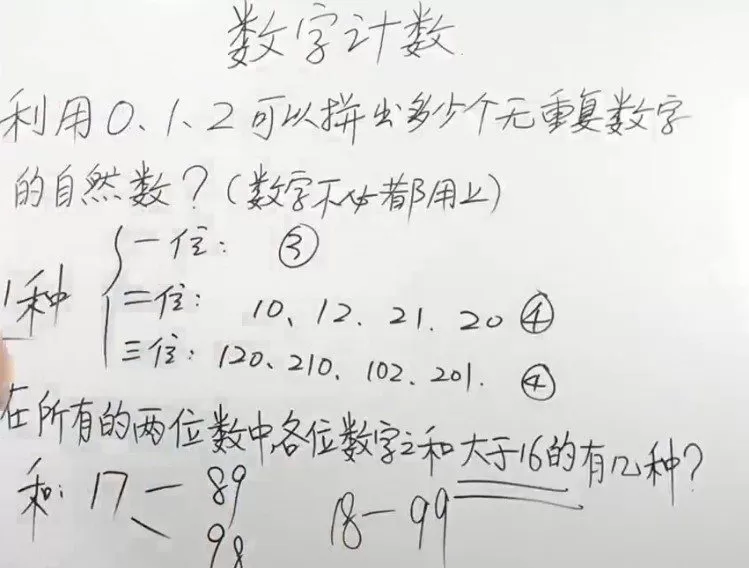 数字计数
利用0、1、2可以拼出多少个无重复数字
的自然数？(数字不必都用上)
一位： ③
1种 二位： 10、12、21、20 ④
三位：120、210、102、201. ④
在所有的两位数中,各位数字之和大于16的有几种？
和：17 — 89
98
18 — 99